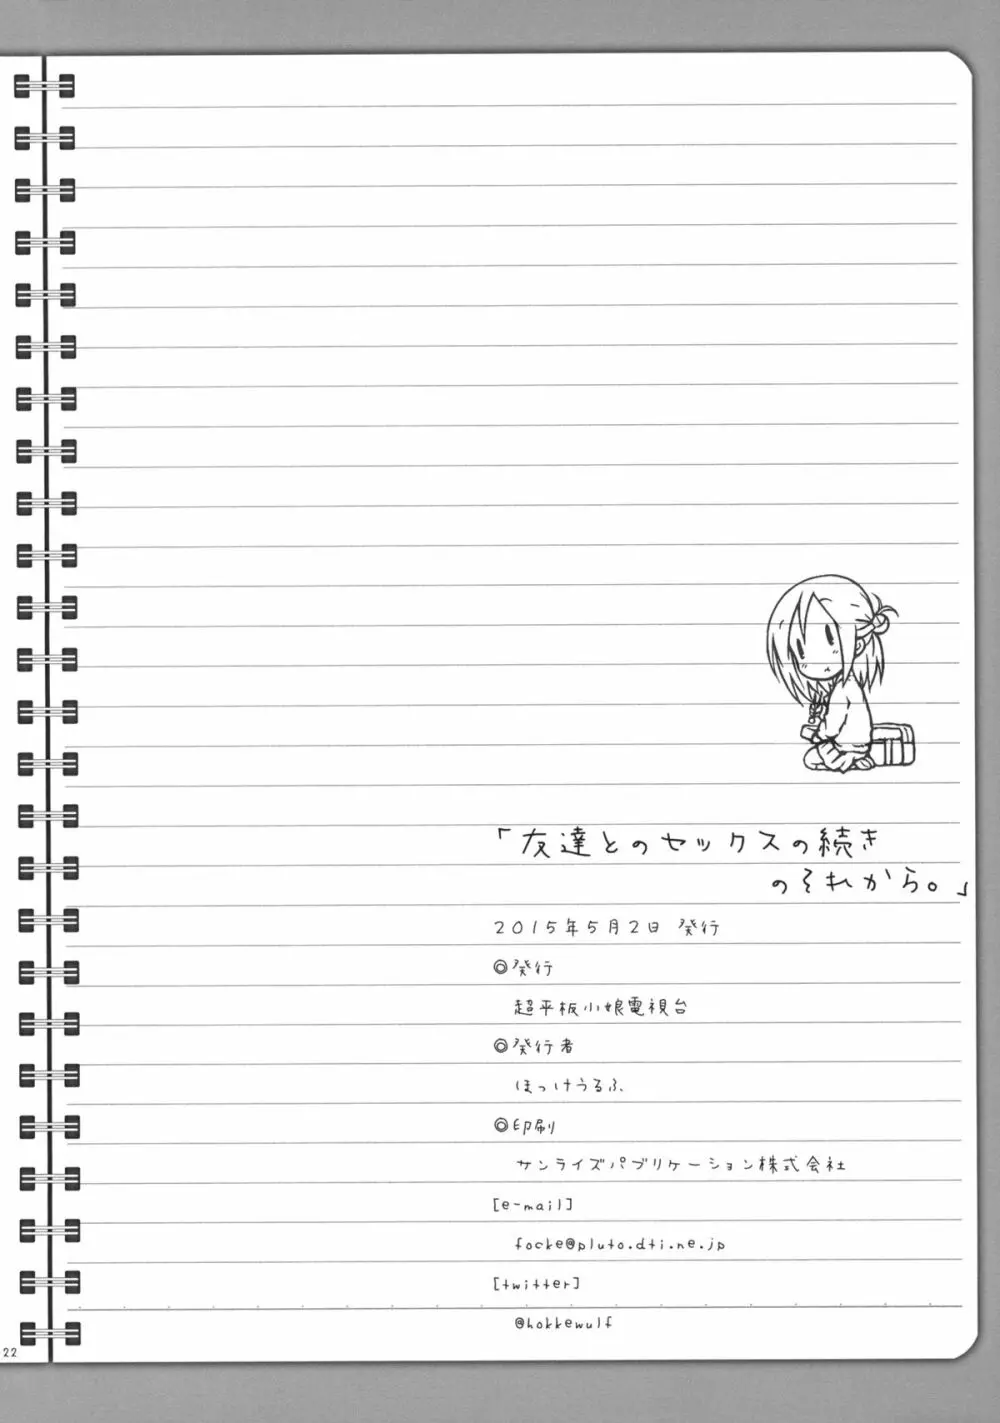 「友達とのセックスの続き
のそれから。」
2015年5月2日 発行
◎発行
超平板小娘電視台
◎発行者
ほっけうるふ
◎印刷
サンライズパブリケーション株式会社
[e-mail]
focke@pluto.dti.ne.jp
[twitter]
@hokkewulf
22